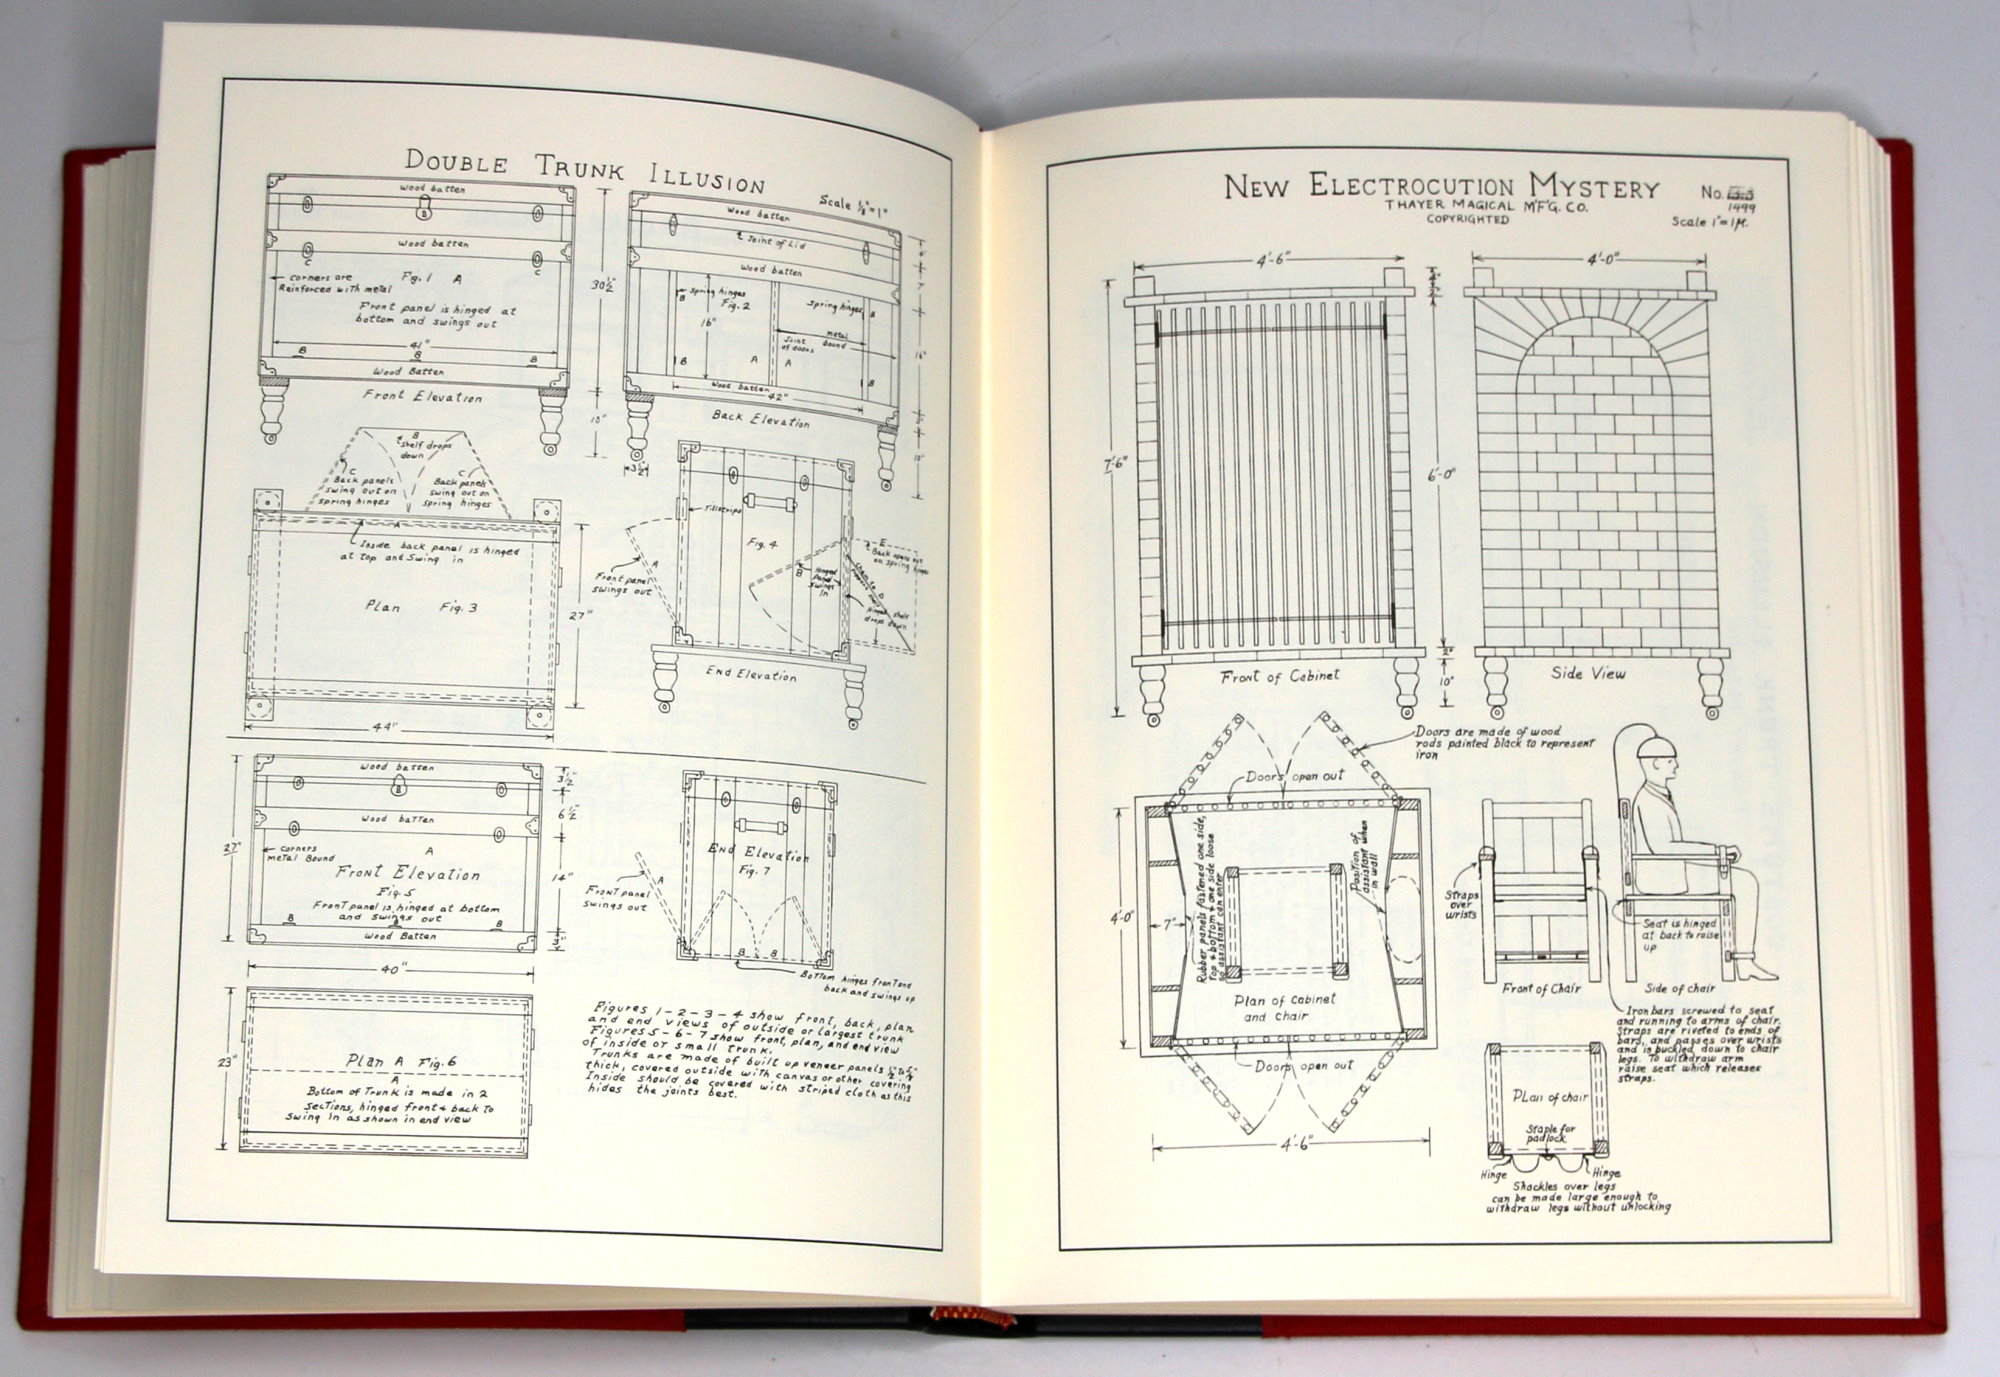 DOUBLE TRUNK ILLUSION
Scale ⅛"=1"
Wood batten
B
Wood batten
C
C
Corners are
Reinforced with metal
Fig. 1 A
Front panel is hinged at
bottom and swings out
41"
B
B
B
Wood Batten
Front Elevation
30½"
10"
Wood batten
Joint of Lid
Wood batten
Spring hinges
B
Fig. 2
16"
Spring hinges
B
metal
bound
Joint
of doors
B
A
A
B
Wood batten
42"
Back Elevation
3½"
16"
B
Shelf drops
down
C
Back panels
swing out on
spring hinges
C
Back panels
swing out on
spring hinges
A
Inside back panel is hinged
at top and Swing in
Plan Fig. 3
27"
44"
Tillstrips
Fig. 4
Front panel
swings out
A
B
Hinged
Panel
Swings
In
E
Back opens out
on spring hinges
Hinged shelf
drops down
End Elevation
Wood batten
B
Wood batten
Corners
Metal Bound
A
Front Elevation
Fig. 5
Front panel is hinged at bottom
and swings out
B
B
Wood Batten
27"
3½"
6½"
14"
40"
End Elevation
Fig. 7
Front panel
swings out
A
B
B
Bottom hinges front and
back and swings up
23"
Plan A Fig. 6
A
Bottom of Trunk is made in 2
sections, hinged front & back to
Swing In as shown in end view
Figures 1-2-3-4 show front, back, plan
and end views of outside or largest trunk
Figures 5-6-7 show front, plan, and end view
of inside or small trunk.
Trunks are made of built up veneer panels
thick, covered outside with canvas or other covering
Inside should be covered with striped cloth as this
hides the joints best.
NEW ELECTROCUTION MYSTERY
No.
1499
THAYER MAGICAL M'F'G. CO.
COPYRIGHTED
Scale 1"=1ft.
4'-6"
4'-0"
7'-6"
6'-0"
2"
10"
Front of Cabinet
Side View
Doors are made of wood
rods painted black to represent
iron
Doors open out
4'-0"
7"
Rubber panels fastened one side,
top & bottom & one side loose
so assistant can enter
Position of
assistant when
in wall
Plan of Cabinet
and Chair
Doors open out
4'-6"
Straps
over
wrists
Seat is hinged
at back to raise
up
Front of Chair
Side of chair
Iron bars screwed to seat
and running to arms of chair.
Straps are riveted to ends of
bars, and passes over wrists
and is buckled down to chair
legs. To withdraw arm
raise seat which releases
straps.
Plan of chair
Staple for
padlock
Hinge
Hinge
Shackles over legs
can be made large enough to
withdraw legs without unlocking